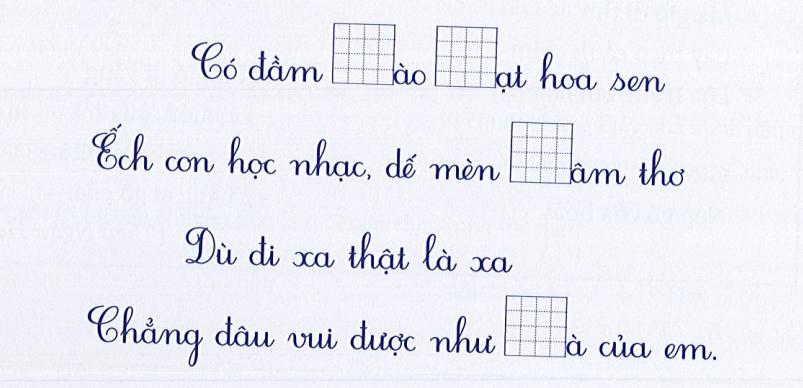 Có đầm ào ạt hoa sen
Ếch con học nhạc, dế mèn âm thơ
Dù đi xa thật là xa
Chẳng đâu vui được như à của em.